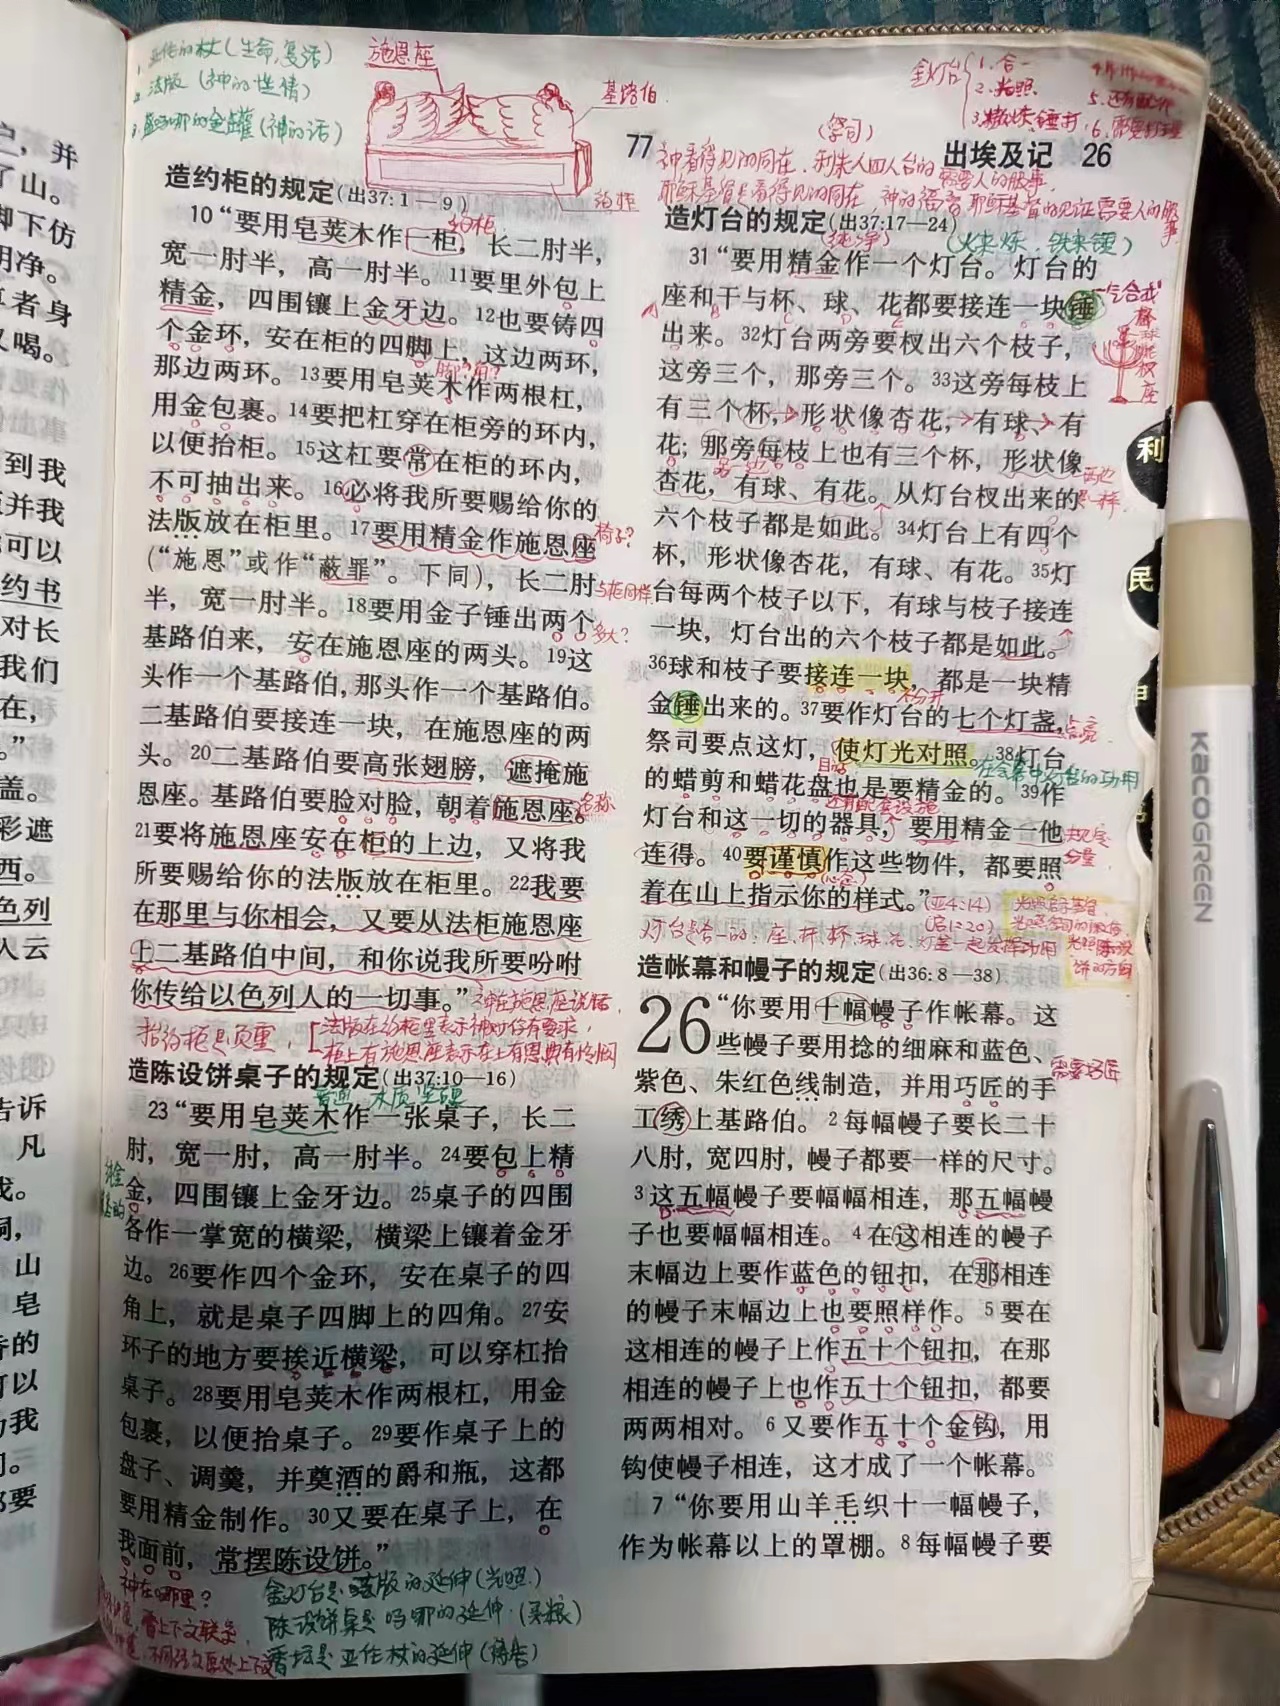 1. 亚伦的杖(生命,复活)
2. 法版(神的性情)
3. 盛吗哪的金罐(神的话)
施恩座
基路伯
约柜
金灯台
1. 合一
2. 光照
3. 精以来,锤打
77
(祭司)
出埃及记 26
耶稣基督是看得见的同在
户,并
了山。
脚下仿
明净。
者身
又喝。
到我
并我
可以
约书
对长
我们
在,
”
盖。
彩遮
西。
色列
人云
告诉
凡
戎。
山
皂
的
可以
为我
司。
都要
造约柜的规定(出37:1—9)
约柜
10 “要用皂荚木作一柜,长二肘半,
宽一肘半,高一肘半。11要里外包上
精金,四围镶上金牙边。12也要铸四
个金环,安在柜的四脚上,这边两环,
脚?角?
那边两环。13要用皂荚木作两根杠,
用金包裹。14要把杠穿在柜旁的环内,
以便抬柜。15这杠要常在柜的环内,
不可抽出来。16必将我所要赐给你的
法版放在柜里。17要用精金作施恩座
椅子?
(“施恩”或作“蔽罪”。下同),长二肘
与柜同样
半,宽一肘半。18要用金子锤出两个
多大?
基路伯来,安在施恩座的两头。19这
头作一个基路伯,那头作一个基路伯。
二基路伯要接连一块,在施恩座的两
头。20二基路伯要高张翅膀,遮掩施
恩座。基路伯要脸对脸,朝着施恩座。
名称
21要将施恩座安在柜的上边,又将我
所要赐给你的法版放在柜里。22我要
在那里与你相会,又要从法柜施恩座
上二基路伯中间,和你说我所要吩咐
你传给以色列人的一切事。”
神在施恩座说话
抬约柜是负重,
法版在约柜里表示神对你有要求,
柜上有施恩座表示在上有恩典有怜悯
造陈设饼桌子的规定(出37:10—16)
普通 木质 坚硬
23 “要用皂荚木作一张桌子,长二
肘,宽一肘,高一肘半。24要包上精
金,四围镶上金牙边。25桌子的四围
各作一掌宽的横梁,横梁上镶着金牙
边。26要作四个金环,安在桌子的四
角上,就是桌子四脚上的四角。27安
环子的地方要挨近横梁,可以穿杠抬
桌子。28要用皂荚木作两根杠,用金
包裹,以便抬桌子。29要作桌子上的
盘子、调羹,并奠酒的爵和瓶,这都
要用精金制作。30又要在桌子上,在
我面前,常摆陈设饼。”
神在哪里?
看上下文联系,
金灯台是法版的延伸(光照.)
陈设饼桌是吗哪的延伸.(灵粮)
香坛是亚伦杖的延伸(祷告)
造灯台的规定(出37:17—24)
(纯净)
(火来炼.铁来锤)
31 “要用精金作一个灯台。灯台的
座和干与杯、球、花都要接连一块锤
出来。32灯台两旁要杈出六个枝子,
这旁三个,那旁三个。33这旁每枝上
有三个杯,形状像杏花,有球、有
花;那旁每枝上也有三个杯,形状像
另一边
杏花,有球、有花。从灯台杈出来的
两边一样
六个枝子都是如此。34灯台上有四个
杯,形状像杏花,有球、有花。35灯
台每两个枝子以下,有球与枝子接连
一块,灯台出的六个枝子都是如此。
36球和枝子要接连一块,都是一块精
不分开
金锤出来的。37要作灯台的七个灯盏,
点亮
祭司要点这灯,使灯光对照。38灯台
目的
在会幕中灯台的功用
的蜡剪和蜡花盘也是要精金的。39作
还有配套设施
灯台和这一切的器具,要用精金一他
连得。40要谨慎作这些物件,都要照
着在山上指示你的样式。”
(亚4:14)
(启1:20)
灯台是合一的:座.杯.球.花.灯盏一起发挥功用
造帐幕和幔子的规定(出36:8—38)
26 “你要用十幅幔子作帐幕。这
些幔子要用捻的细麻和蓝色、
需要巧匠
紫色、朱红色线制造,并用巧匠的手
工绣上基路伯。2每幅幔子要长二十
八肘,宽四肘,幔子都要一样的尺寸。
3这五幅幔子要幅幅相连,那五幅幔
子也要幅幅相连。4在这相连的幔子
末幅边上要作蓝色的钮扣,在那相连
的幔子末幅边上也要照样作。5要在
这相连的幔子上作五十个钮扣,在那
相连的幔子上也作五十个钮扣,都要
两两相对。6又要作五十个金钩,用
钩使幔子相连,这才成了一个帐幕。
7 “你要用山羊毛织十一幅幔子,
作为帐幕以上的罩棚。8每幅幔子要
利
民
申
KACOGREEN